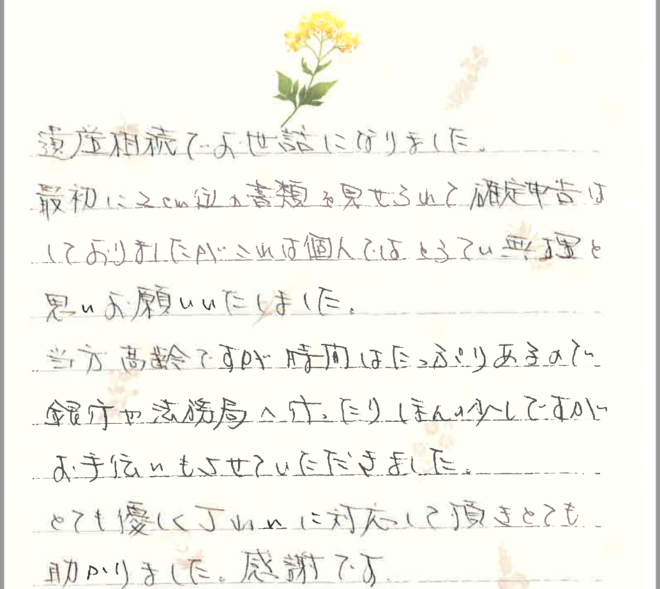 遺産相続でお世話になりました。
最初に2cm位の書類を見せられて確定申告は
しておりましたがこれは個人ではとうてい無理と
思いお願いいたしました。
当方高齢ですが時間はたっぷりあるので
銀行や法務局へ行ったりほんの少しですが
お手伝いもさせていただきました。
とても優しくていねいに対応して頂きとても
助かりました。感謝です